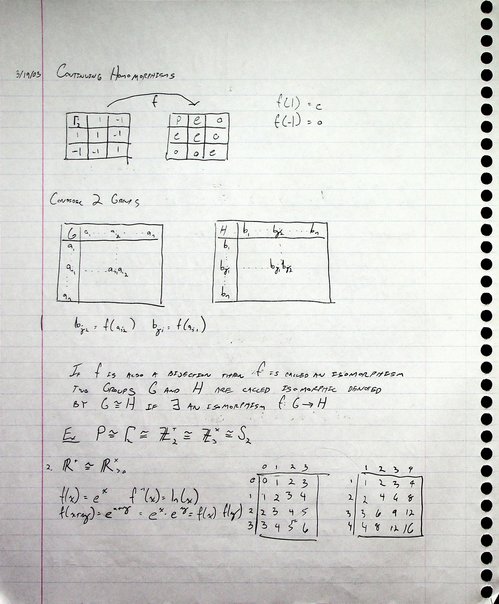 3/19/03 CONTINUING HOMOMORPHISMS
f
Γ₂ 1 -1
1 1 -1
-1 -1 1
P e o
e e o
o o e
f(1) = e
f(-1) = o
CONSIDER 2 GROUPS
G a₁ ... a₂ ... aₙ
a₁
H b₁ ... bⱼ₂ ... bₙ
b₁
bⱼ₁ bⱼ₁bⱼ₂
bₙ
bⱼ₂ = f(aᵢ₂) bⱼ₁ = f(aᵢ₁)
IF f IS ALSO A BIJECTION THEN f IS CALLED AN ISOMORPHISM
TWO GROUPS G AND H ARE CALLED ISOMORPHIC DENOTED
BY G ≅ H IF ∃ AN ISOMORPHISM f: G → H
Ex. P ≅ Γ₂ ≅ ℤ₂⁺ ≅ ℤ₃ˣ ≅ S₂
2. ℝ⁺ ≅ ℝˣ>₀
f(x) = eˣ f⁻¹(x) = ln(x)
f(x+y) = eˣ⁺ʸ = eˣ · eʸ = f(x) f(y)
0 1 2 3
0 0 1 2 3
1 1 2 3 4
2 2 3 4 5
3 3 4 5 6
1 2 3 4
1 1 2 3 4
2 2 4 6 8
3 3 6 9 12
4 4 8 12 16